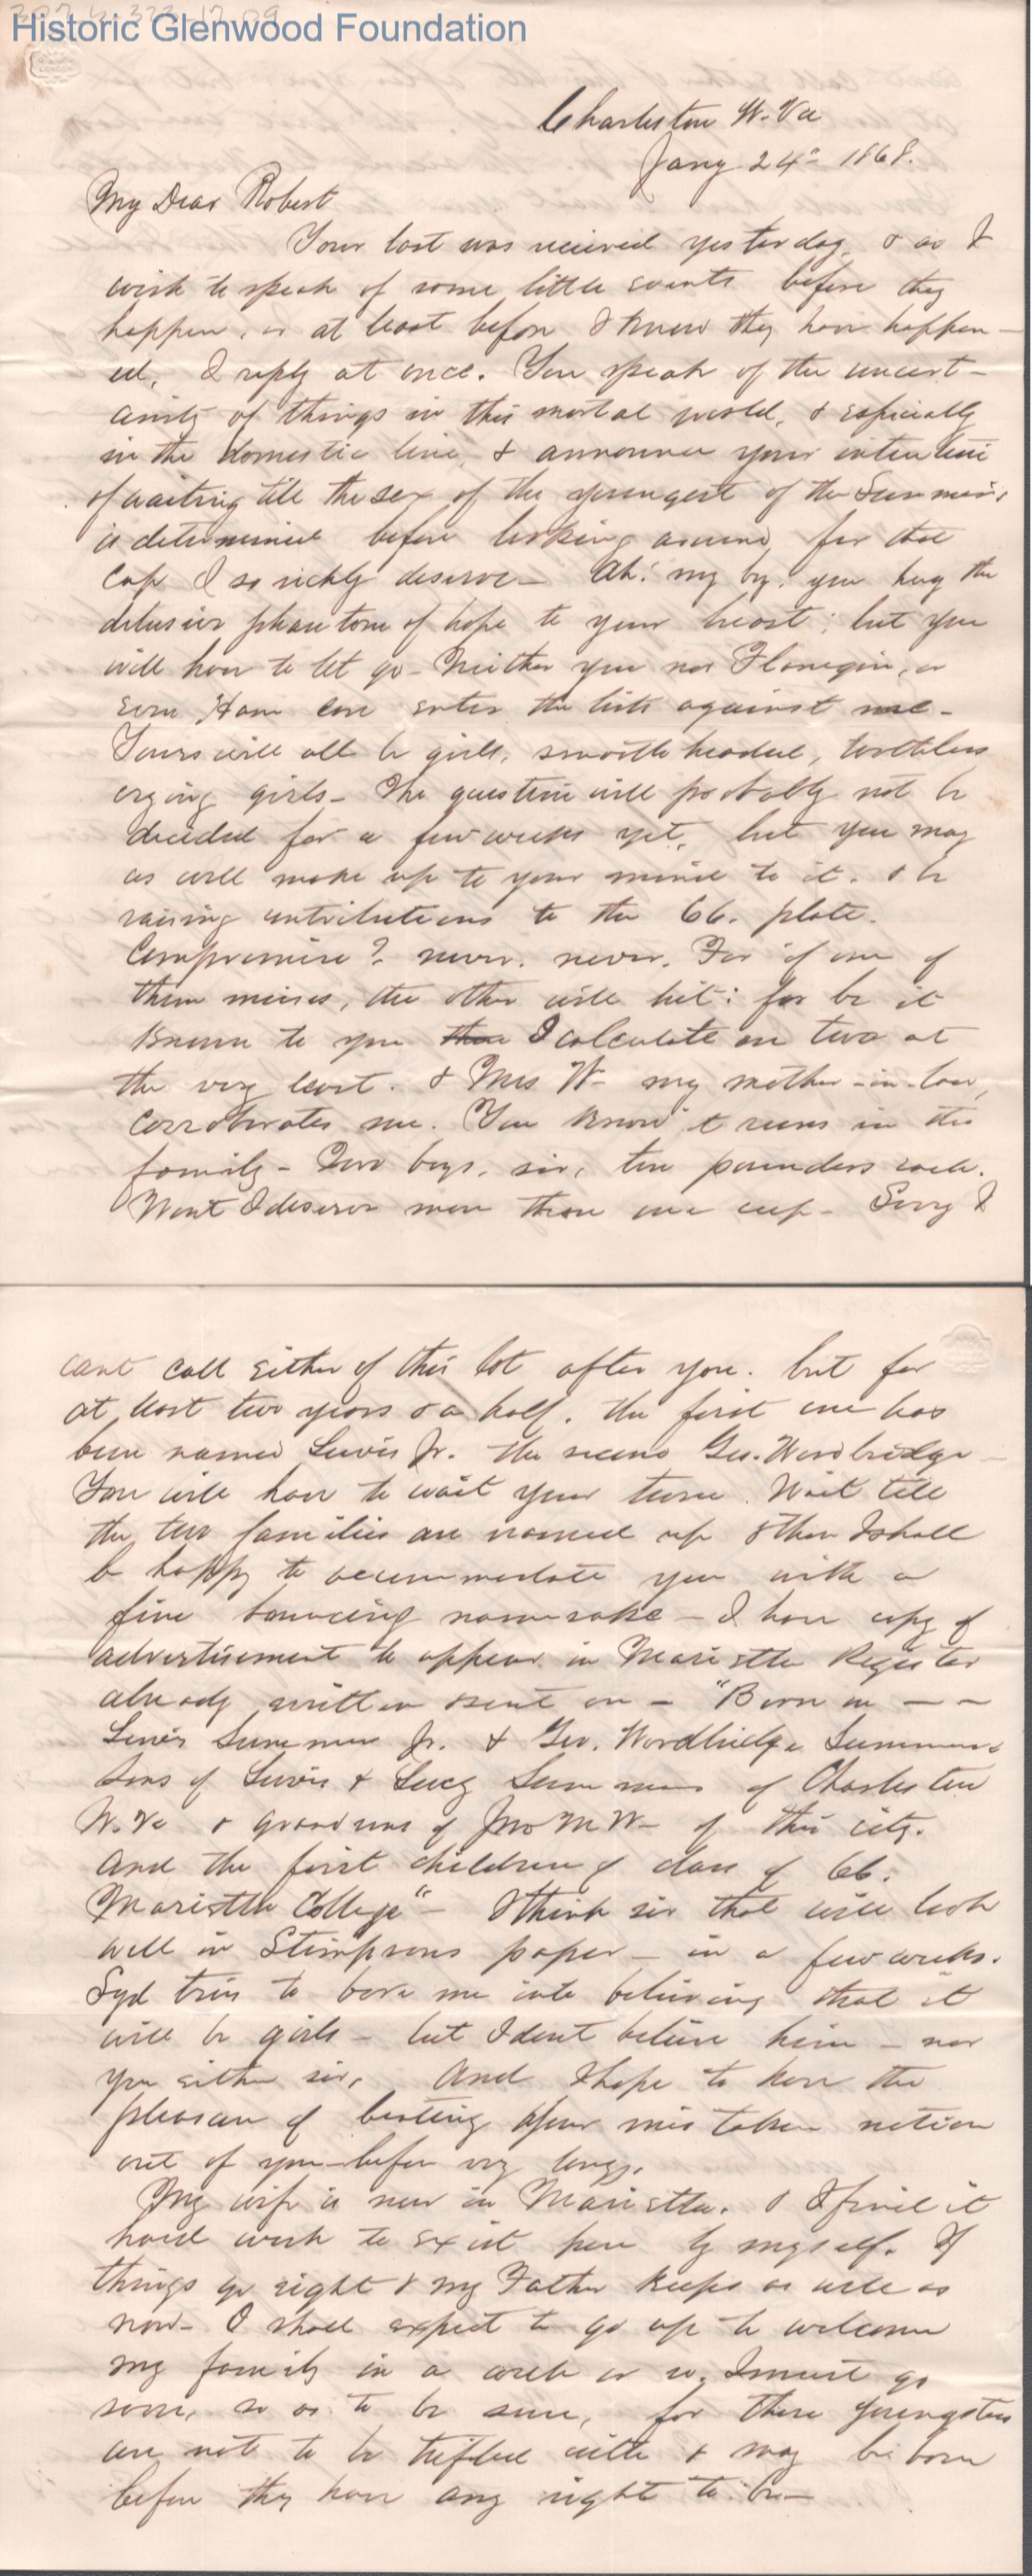 Historic Glenwood Foundation
Charleston W. Va
Jany 24th 1868.
My Dear Robert
Your last was received yesterday, & as I
wish to speak of some little events before they
happen, or at least before I know they have happen-
ed, I reply at once. You speak of the uncert-
ainty of things in this mortal world, & especially
in the domestic line, & announce your intention
of waiting till the sex of the youngest of the Summers,
is determined before looking around for that
Cup I so richly deserve - Ah! my boy, you hug the
delusive phantom of hope to your heart; but you
will have to let go - Neither you nor Flanegin, or
even Ham can enter the lists against me -
Yours will all be girls, smooth headed, toothless
crying girls - The question will probably not be
decided for a few weeks yet, but you may
as well make up to your mind to it, & be
raising contributions to the 66. plate.
Compromise? never, never. For if one of
them misses, the other will hit: for be it
known to you I calculate on two at
the very least. & Mrs W- my mother-in-law,
corroborates me. You know it runs in the
family - Two boys, sir, ten pounders each.
Wont I deserve more than one cup - Sorry I
cant call either of this lot after you. but for
at least two years & a half, the first one has
been named Lewis Jr. the second Geo. Woodbridge -
You will have to wait your turn. Wait till
the two families are named up & then I shall
be happy to accommodate you with a
fine bouncing namesake - I have copy of
advertisement to appear in Marietta Register
already written & sent on - "Born on - -
Lewis Summers Jr. & Geo. Woodbridge Summers
sons of Lewis & Lucy Summers of Charleston
W. Va & grandsons of Jno M W- of this city.
And the first children of class of 66.
Marietta College" - I think sir that will look
well in Stimpsons paper - in a few weeks.
Syd tries to bore me into believing that it
will be girls - but I dont believe him - nor
you either sir, And I hope to have the
pleasure of beating your mistaken notion
out of you before very long.
My wife is now in Marietta. & I find it
hard work to exist here by myself. If
things go right & my Father keeps as well as
now - I shall expect to go up to welcome
my family in a week or so. I must go
soon, so as to be sure, for these youngsters
are not to be trifled with & may be born
before they have any right to be -